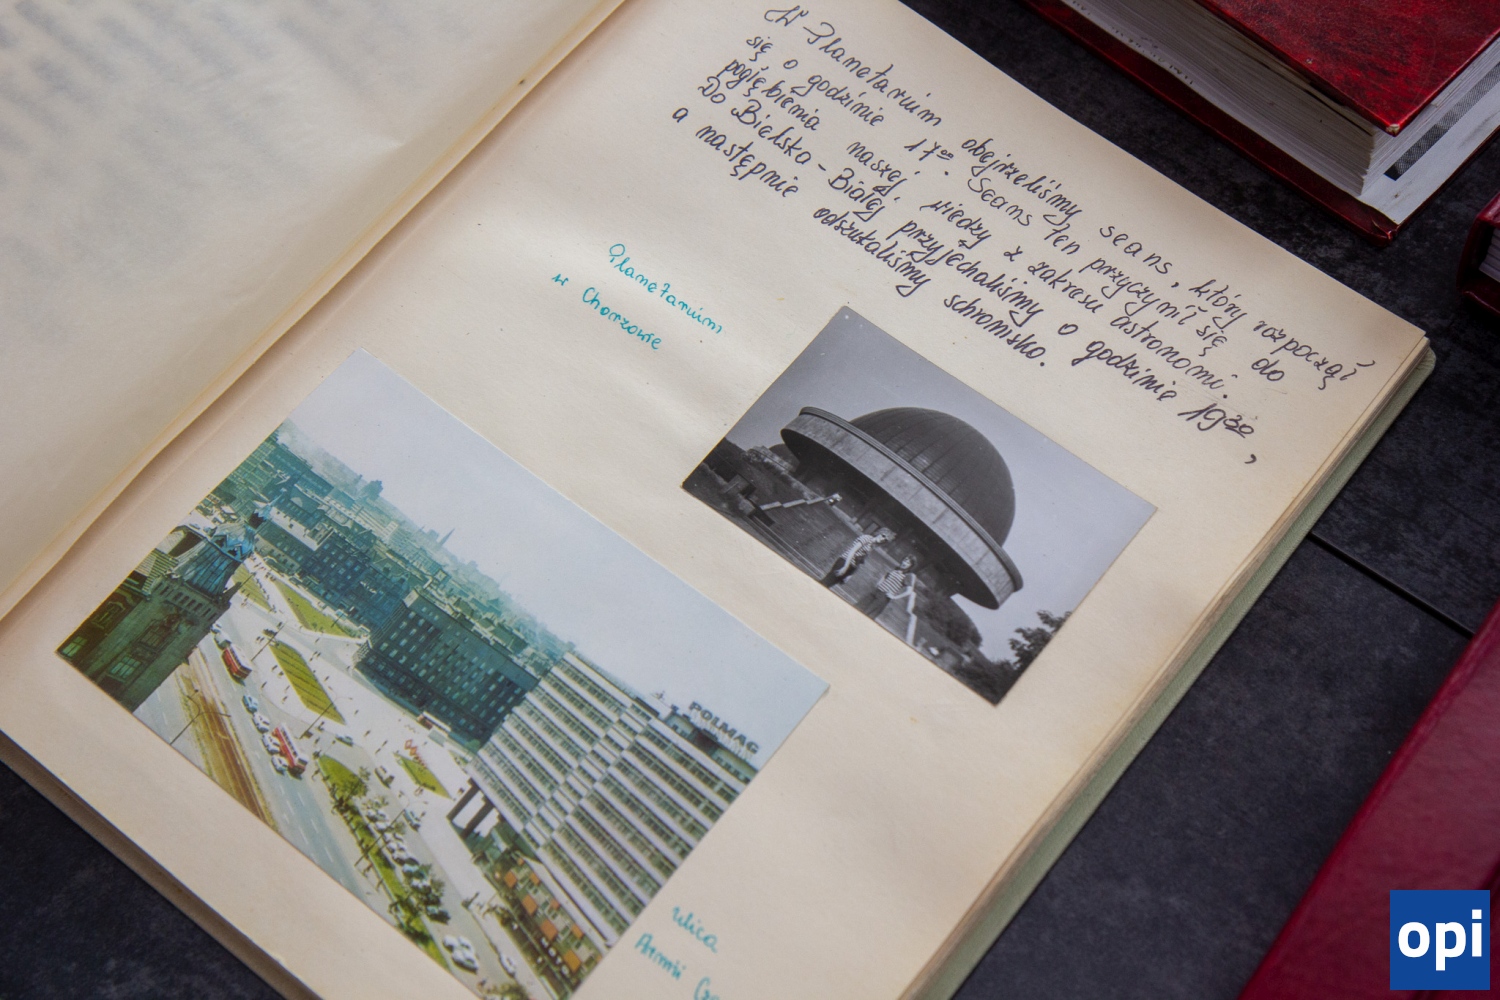 W Planetarium obejrzeliśmy seans, który rozpoczął
się o godzinie 17⁰⁰. Seans ten przyczynił się do
pogłębienia naszej wiedzy z zakresu astronomi.
Do Bielsko-Białej przyjechaliśmy o godzinie 19³⁰,
a następnie odszukaliśmy schronisko.
Planetarium
w Chorzowie
POLMAG
Ulica
Armii
opi